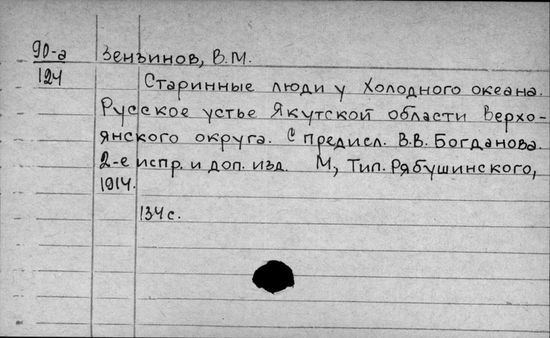 90-а Зензинов, В.М.
124
Старинные люди у Холодного океана.
Русское устье Якутской области Верхо-
янского округа. С предисл. В.В. Богданова.
2-е испр. и доп. изд. М, Тип. Рябушинского,
1914.
134 с.